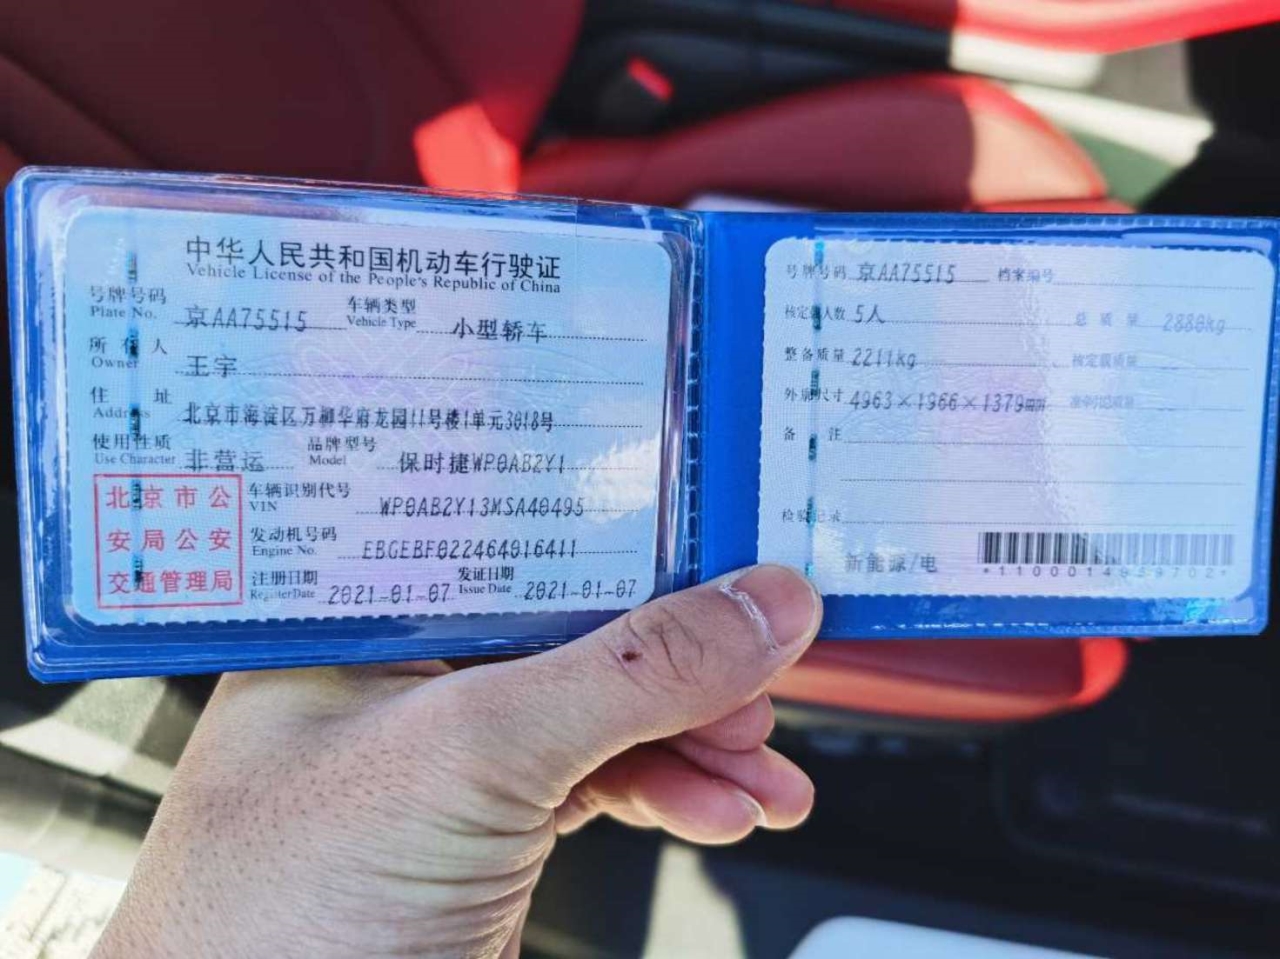 中华人民共和国机动车行驶证
Vehicle License of the People's Republic of China
号牌号码 京AA75515 车辆类型 小型轿车
Plate No. Vehicle Type
所有人 王宇
Owner
住址 北京市海淀区万柳华府龙园11号楼1单元3018号
Address
使用性质 非营运 品牌型号 保时捷WP0AB2Y1
Use Character Model
北京市公
安局公安
交通管理局
车辆识别代号 WP0AB2Y13MSA40495
VIN
发动机号码 EBGEBF022464016411
Engine No.
注册日期 2021-01-07 发证日期 2021-01-07
Register Date Issue Date
号牌号码 京AA75515 档案编号
核定载人数 5人 总质量 2880kg
整备质量 2211kg 核定载质量
外廓尺寸 4963×1966×1379mm 准牵引总质量
备注
检验记录
新能源/电